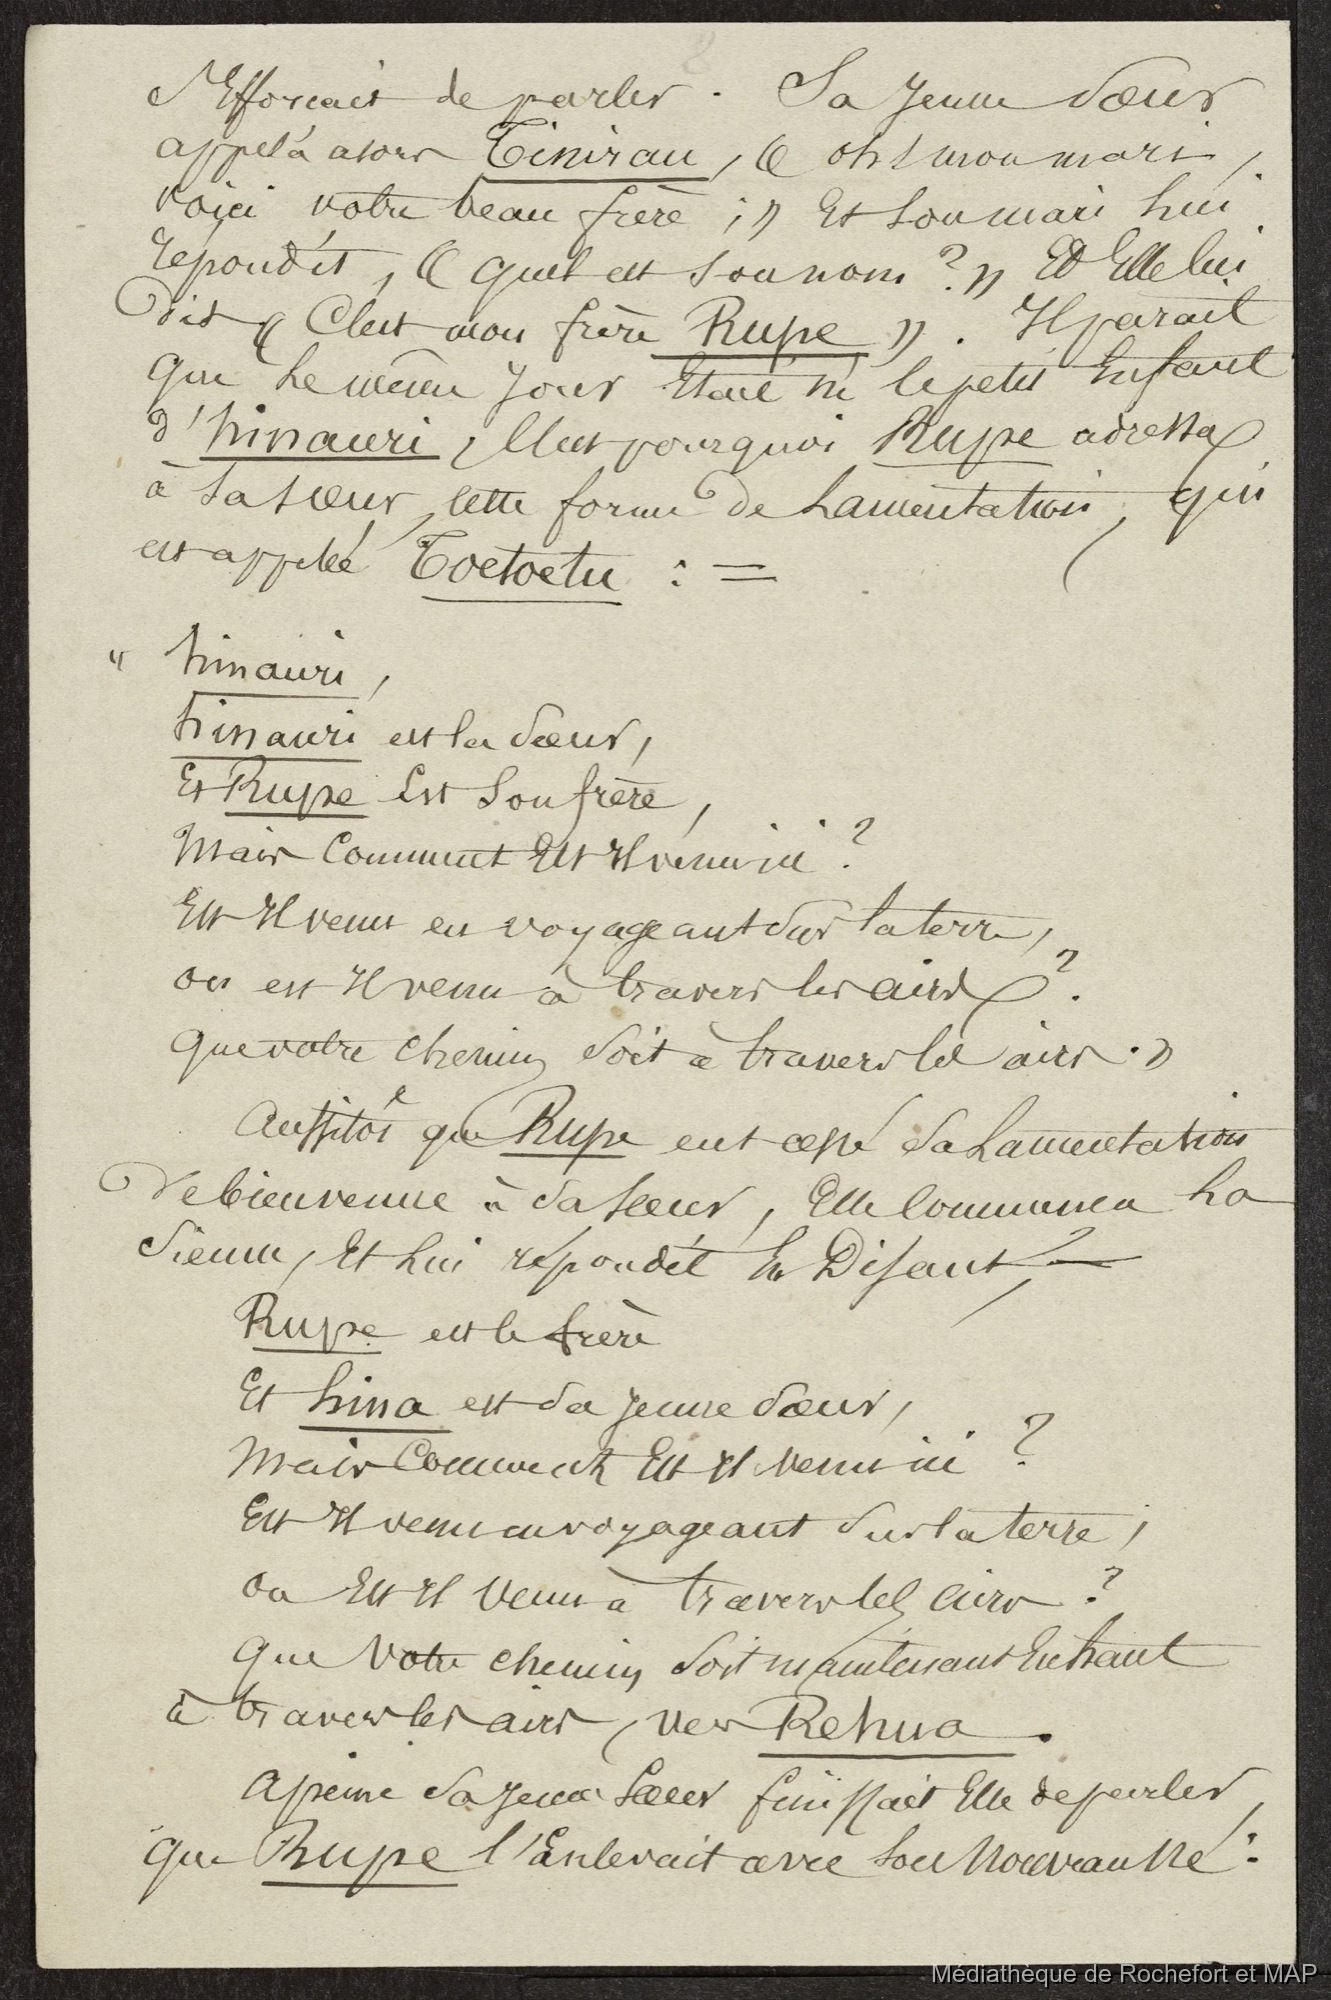 s'Efforçait de parler. Sa jeune sœur
appela alors Tinirau, « oh ! mon mari,
voici votre beau frère ; » Et son mari lui
repondit, « quel est son nom ? » Et Elle lui
dit « C'est mon frère Rupe ». Il parait
que le même jour était né le petit Enfant
d'hinauri, C'est pourquoi Rupe adressa
à sa sœur, cette forme de Lamentation, qui
est appelé Toetoetu : =
" hinauri,
hinauri est la sœur,
Et Rupe Est son frère,
Mais Comment Est Il venu ici ?
Est Il venu en voyageant sur la terre,
ou est Il venu à travers les airs ?
Que votre chemin soit à travers les airs. »
Aussitôt que Rupe eut cessé sa Lamentation
de bienvenue à sa sœur, Elle Commença La
sienne, Et Lui répondit En Disant —
Rupe est le frère
Et hina est sa jeune sœur,
Mais Comment Est Il venu ici ?
Est Il venu en voyageant sur la terre,
ou Est Il Venu à travers les airs ?
Que Votre chemin soit maintenant En haut
à travers les airs, vers Rehua.
A peine sa jeune sœur finissait Elle de parler,
que Rupe l'Enlevait avec son Nouveau Né :
Médiathèque de Rochefort et MAP